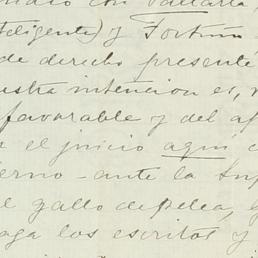 con
teligente) y Fortun
de derecho presenté
ustra intencion es,
favorable y del
el juicio aquí
ierno - ante la Sup
el gallo de pelea,
aga los escritos y